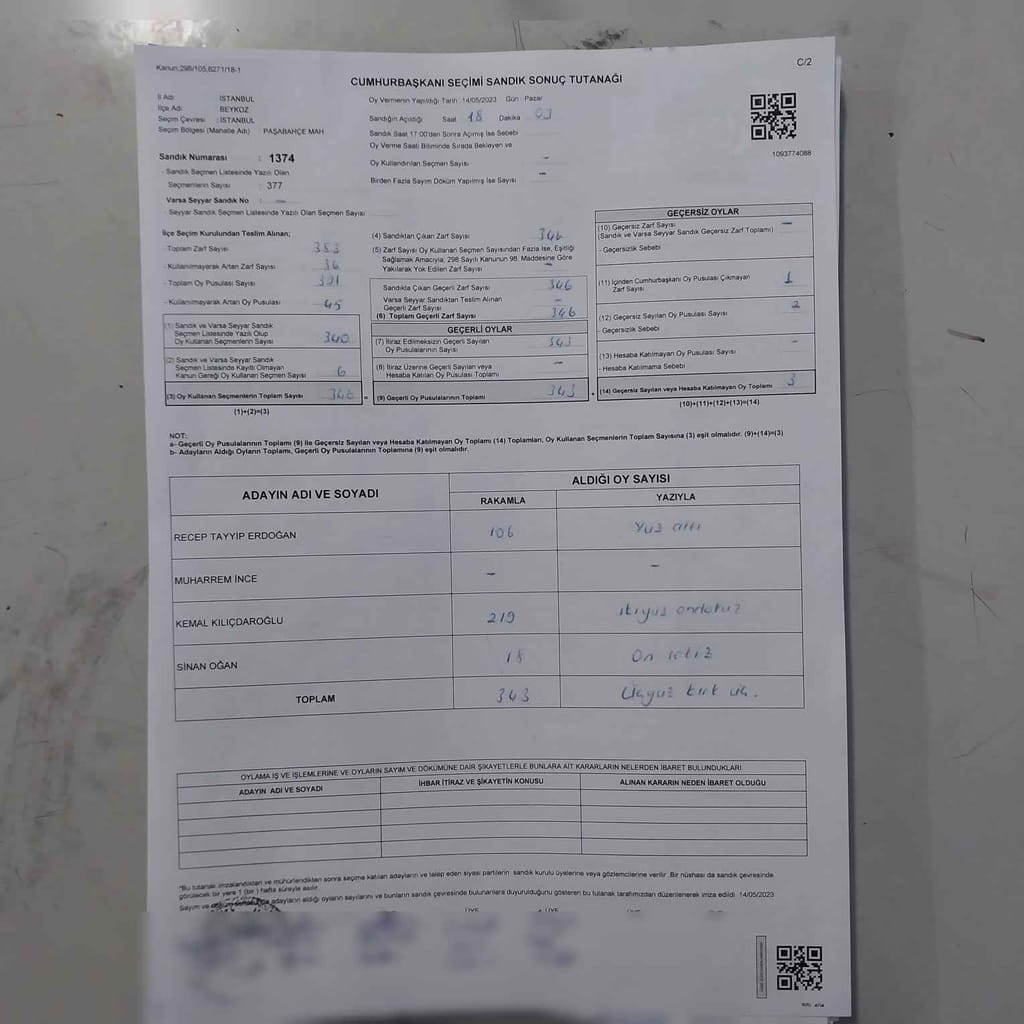 Kanun:298/105,6271/18-1
C/2
CUMHURBAŞKANI SEÇİMİ SANDIK SONUÇ TUTANAĞI
İl Adı : İSTANBUL
İlçe Adı : BEYKOZ
Seçim Çevresi : İSTANBUL
Seçim Bölgesi (Mahalle Adı) PAŞABAHÇE MAH
Sandık Numarası : 1374
- Sandık Seçmen Listesinde Yazılı Olan
Seçmenlerin Sayısı : 377
Varsa Seyyar Sandık No : -
- Seyyar Sandık Seçmen Listesinde Yazılı Olan Seçmen Sayısı
Oy Vermenin Yapıldığı Tarih: 14/05/2023 Gün : Pazar
Sandığın Açıldığı Saat 18 Dakika 03
Sandık Saat 17:00'den Sonra Açılmış İse Sebebi
Oy Verme Saati Bitiminde Sırada Bekleyen ve
Oy Kullandırılan Seçmen Sayısı -
Birden Fazla Sayım Döküm Yapılmış İse Sayısı -
1093774088
İlçe Seçim Kurulundan Teslim Alınan;
- Toplam Zarf Sayısı 383
- Kullanılmayarak Artan Zarf Sayısı 36
- Toplam Oy Pusulası Sayısı 391
- Kullanılmayarak Artan Oy Pusulası 45
(1) Sandık ve Varsa Seyyar Sandık
Seçmen Listesinde Yazılı Olup
Oy Kullanan Seçmenlerin Sayısı 340
(2) Sandık ve Varsa Seyyar Sandık
Seçmen Listesinde Kayıtlı Olmayan
Kanun Gereği Oy Kullanan Seçmen Sayısı 6
(3) Oy Kullanan Seçmenlerin Toplam Sayısı =
(1)+(2)=(3)
(4) Sandıktan Çıkan Zarf Sayısı 346
(5) Zarf Sayısı Oy Kullanan Seçmen Sayısından Fazla İse, Eşitliği
Sağlamak Amacıyla, 298 Sayılı Kanunun 98. Maddesine Göre
Yakılarak Yok Edilen Zarf Sayısı -
Sandıkta Çıkan Geçerli Zarf Sayısı 346
Varsa Seyyar Sandıktan Teslim Alınan
Geçerli Zarf Sayısı -
(6) Toplam Geçerli Zarf Sayısı 346
GEÇERLİ OYLAR
(7) İtiraz Edilmeksizin Geçerli Sayılan
Oy Pusulalarının Sayısı 343
(8) İtiraz Üzerine Geçerli Sayılan veya
Hesaba Katılan Oy Pusulası Toplamı -
(9) Geçerli Oy Pusulalarının Toplamı 343 +
GEÇERSİZ OYLAR
(10) Geçersiz Zarf Sayısı -
(Sandık ve Varsa Seyyar Sandık Geçersiz Zarf Toplamı)
- Geçersizlik Sebebi
(11) İçinden Cumhurbaşkanı Oy Pusulası Çıkmayan
Zarf Sayısı 1
(12) Geçersiz Sayılan Oy Pusulası Sayısı 2
- Geçersizlik Sebebi
(13) Hesaba Katılmayan Oy Pusulası Sayısı -
- Hesaba Katılmama Sebebi
(14) Geçersiz Sayılan veya Hesaba Katılmayan Oy Toplamı 3
(10)+(11)+(12)+(13)=(14)
NOT:
a- Geçerli Oy Pusulalarının Toplamı (9) ile Geçersiz Sayılan veya Hesaba Katılmayan Oy Toplamı (14) Toplamları, Oy Kullanan Seçmenlerin Toplam Sayısına (3) eşit olmalıdır. (9)+(14)=(3)
b- Adayların Aldığı Oyların Toplamı, Geçerli Oy Pusulalarının Toplamına (9) eşit olmalıdır.
ADAYIN ADI VE SOYADI ALDIĞI OY SAYISI
RAKAMLA YAZIYLA
RECEP TAYYİP ERDOĞAN 106 Yuz altı
MUHARREM İNCE - -
KEMAL KILIÇDAROĞLU 219 ikiyuz ondokuz
SİNAN OĞAN 18 On sekiz
TOPLAM 343 Üçyuz kırk üç.
OYLAMA İŞ VE İŞLEMLERİNE VE OYLARIN SAYIM VE DÖKÜMÜNE DAİR ŞİKAYETLERLE BUNLARA AİT KARARLARIN NELERDEN İBARET BULUNDUKLARI
ADAYIN ADI VE SOYADI İHBAR İTİRAZ VE ŞİKAYETİN KONUSU ALINAN KARARIN NEDEN İBARET OLDUĞU
"Bu tutanak imzalandıktan ve mühürlendikten sonra seçime katılan adayların ve talep eden siyasi partilerin sandık kurulu üyelerine veya gözlemcilerine verilir. Bir nüshası da sandık çevresinde
görülecek bir yere 1 (bir) hafta süreyle asılır.
Sayım ve adayların aldığı oyların sayılarını ve bunların sandık çevresinde bulunanlara duyurulduğunu gösteren bu tutanak tarafımızdan düzenlenerek imza edildi. 14/05/2023
ÜYE ÜYE ÜYE